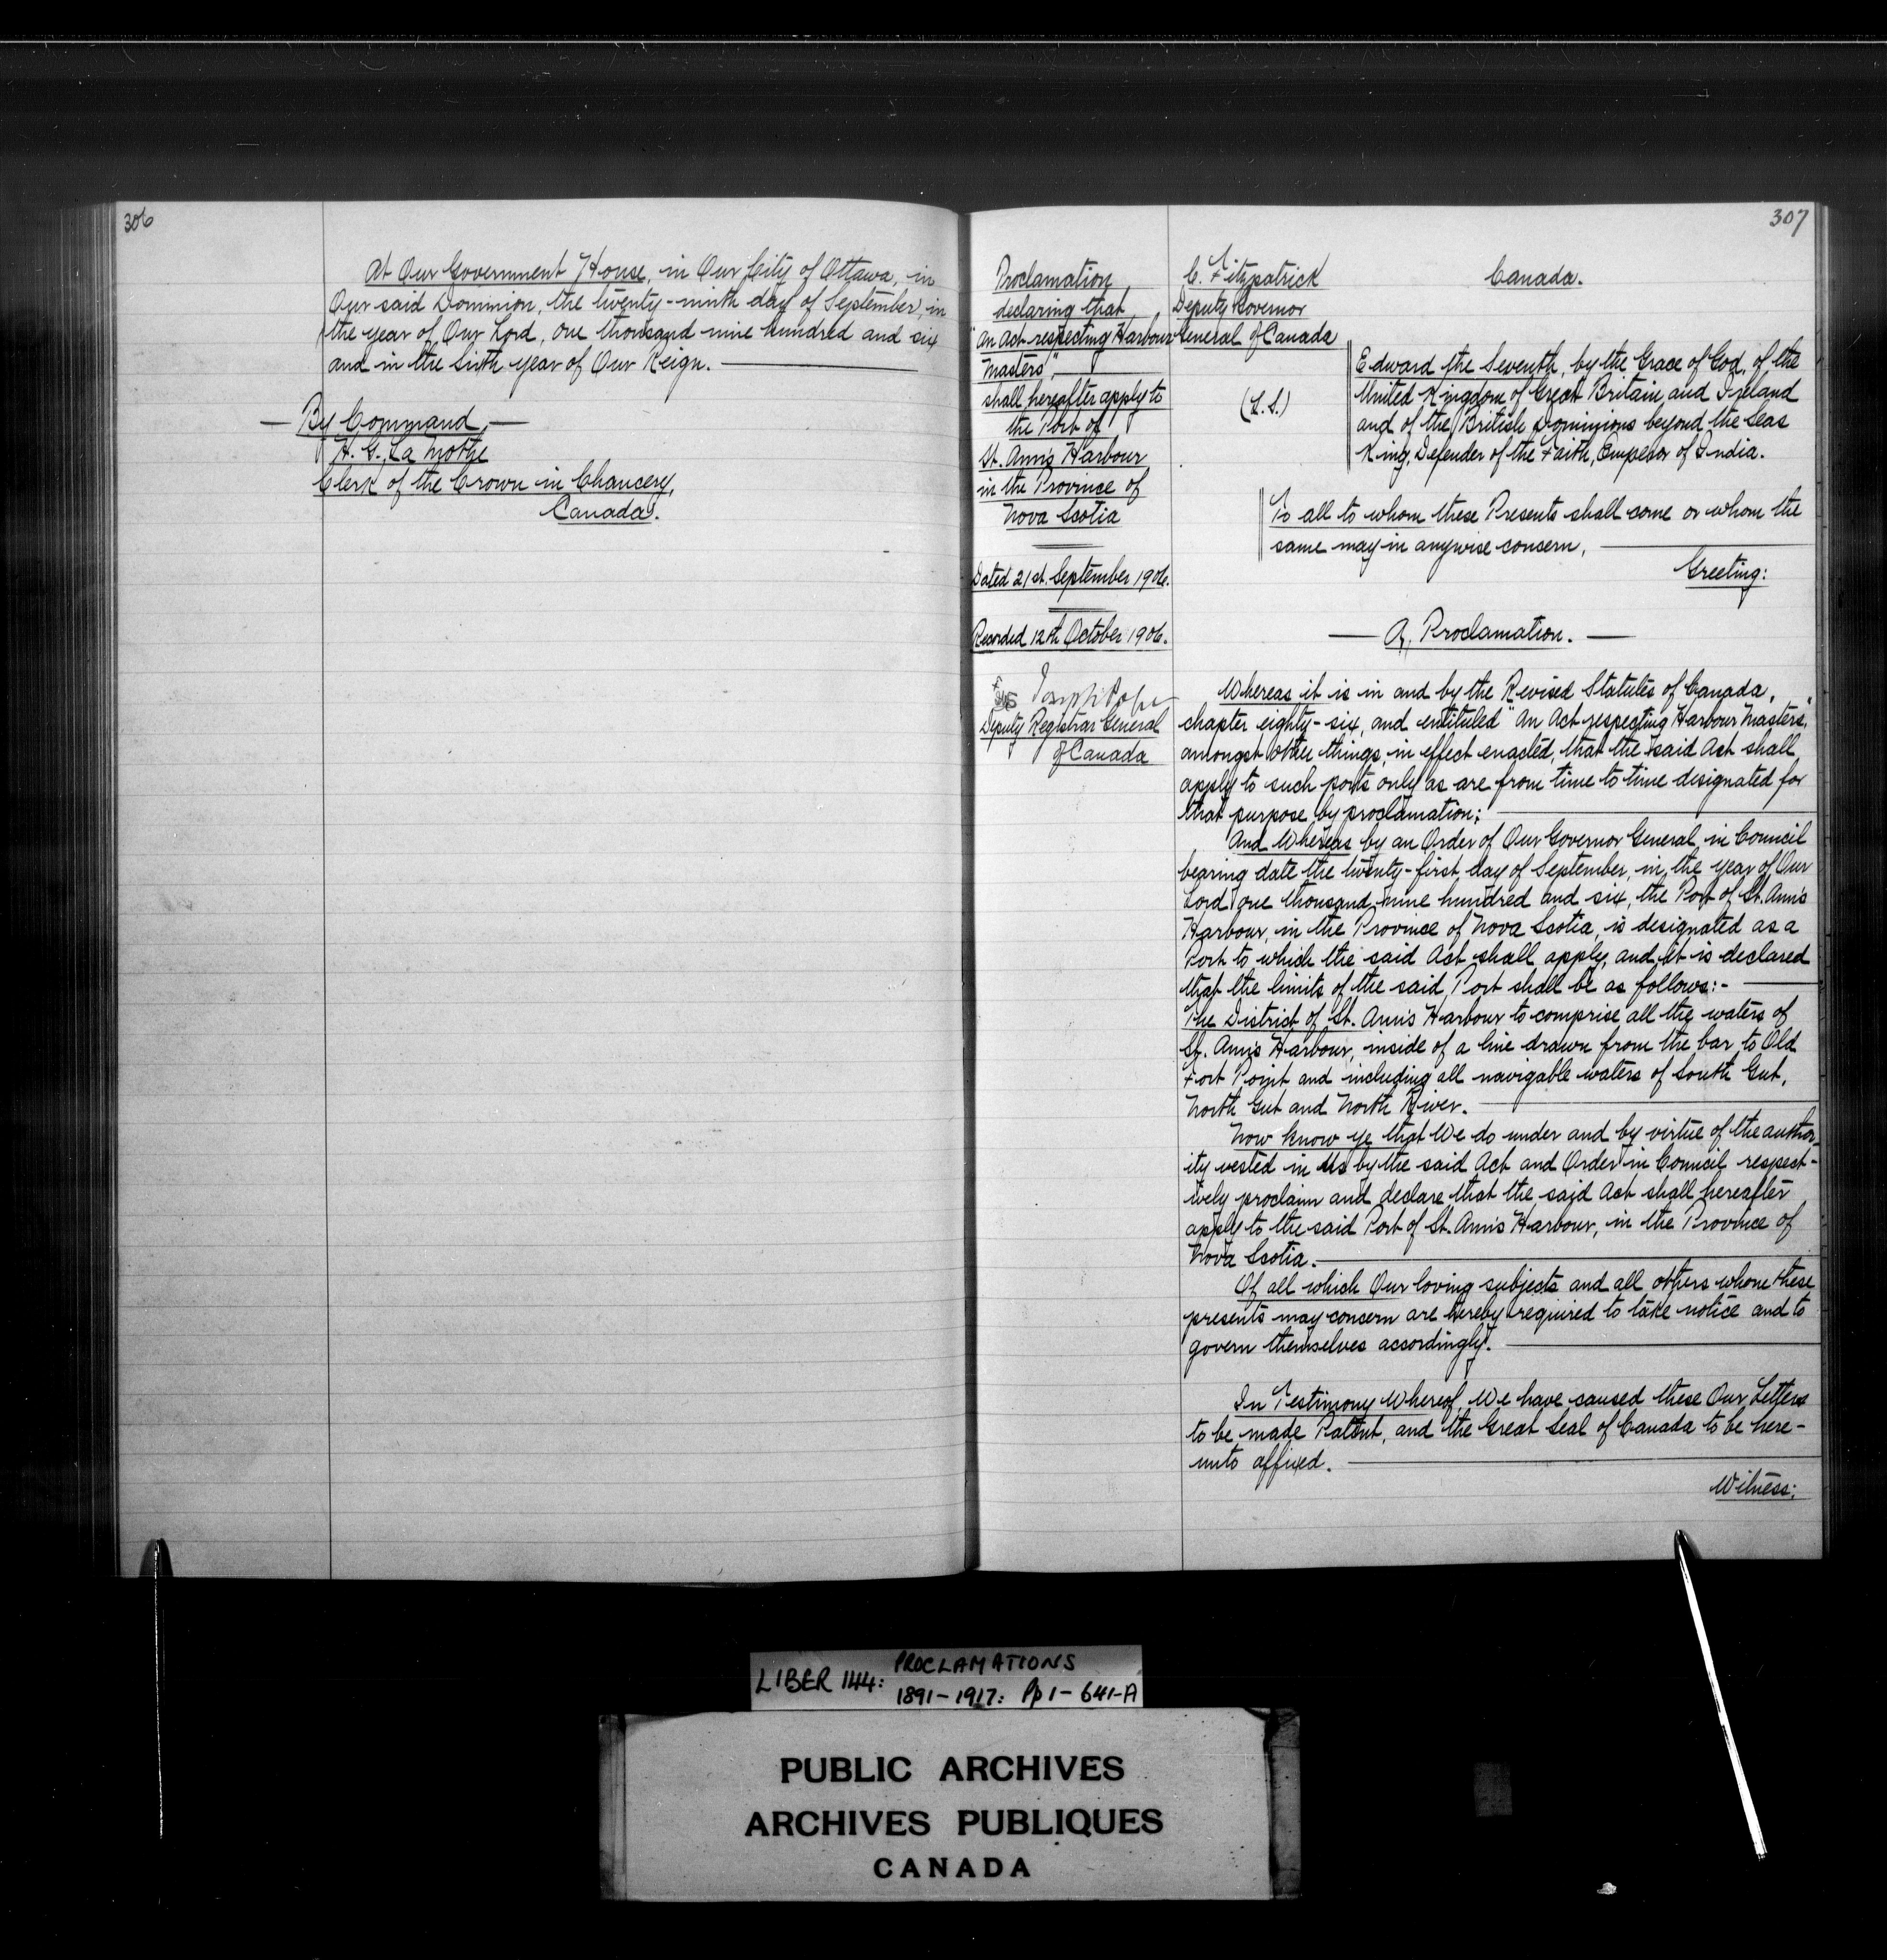 306
At Our Government House, in Our City of Ottawa, in
Our said Dominion, the twenty-ninth day of September, in
the year of Our Lord, one thousand nine hundred and six
and in the Sixth year of Our Reign.
By Command,
H. G. La Mothe
Clerk of the Crown in Chancery,
Canada.
307
Proclamation
declaring that
"An Act respecting Harbour
Masters",
shall hereafter apply to
the Port of
St. Ann's Harbour
in the Province of
Nova Scotia
Dated 21st. September 1906.
Recorded 12th October 1906.
Joseph Pope
Deputy Registrar General
of Canada
C. Fitzpatrick
Deputy Governor
General of Canada
Canada.
(L.S.)
Edward the Seventh, by the Grace of God, of the
United Kingdom of Great Britain and Ireland
and of the British Dominions beyond the Seas
King, Defender of the Faith, Emperor of India.
To all to whom these Presents shall come or whom the
same may in anywise concern,
Greeting:
A Proclamation.
Whereas it is in and by the Revised Statutes of Canada,
chapter eighty-six, and entituled "An Act respecting Harbour Masters,"
amongst other things, in effect enacted, that the said Act shall
apply to such ports only as are from time to time designated for
that purpose by proclamation;
And Whereas by an Order of Our Governor General in Council
bearing date the twenty-first day of September, in the year of Our
Lord one thousand nine hundred and six, the Port of St. Ann's
Harbour, in the Province of Nova Scotia, is designated as a
Port to which the said Act shall apply, and it is declared
that the limits of the said Port shall be as follows:-
The District of St. Ann's Harbour to comprise all the waters of
St. Ann's Harbour, inside of a line drawn from the bar to Old
Fort Point and including all navigable waters of South Gut,
North Gut and North River.
Now know ye that We do under and by virtue of the author-
ity vested in Us by the said Act and Order in Council respect-
ively proclaim and declare that the said Act shall hereafter
apply to the said Port of St. Ann's Harbour, in the Province of
Nova Scotia.
Of all which Our loving subjects and all others whom these
presents may concern are hereby required to take notice and to
govern themselves accordingly.
In Testimony Whereof, We have caused these Our Letters
to be made Patent, and the Great Seal of Canada to be here-
unto affixed.
Witness:
LIBER 144: PROCLAMATIONS
1891-1917: Pp 1-641-A
PUBLIC ARCHIVES
ARCHIVES PUBLIQUES
CANADA